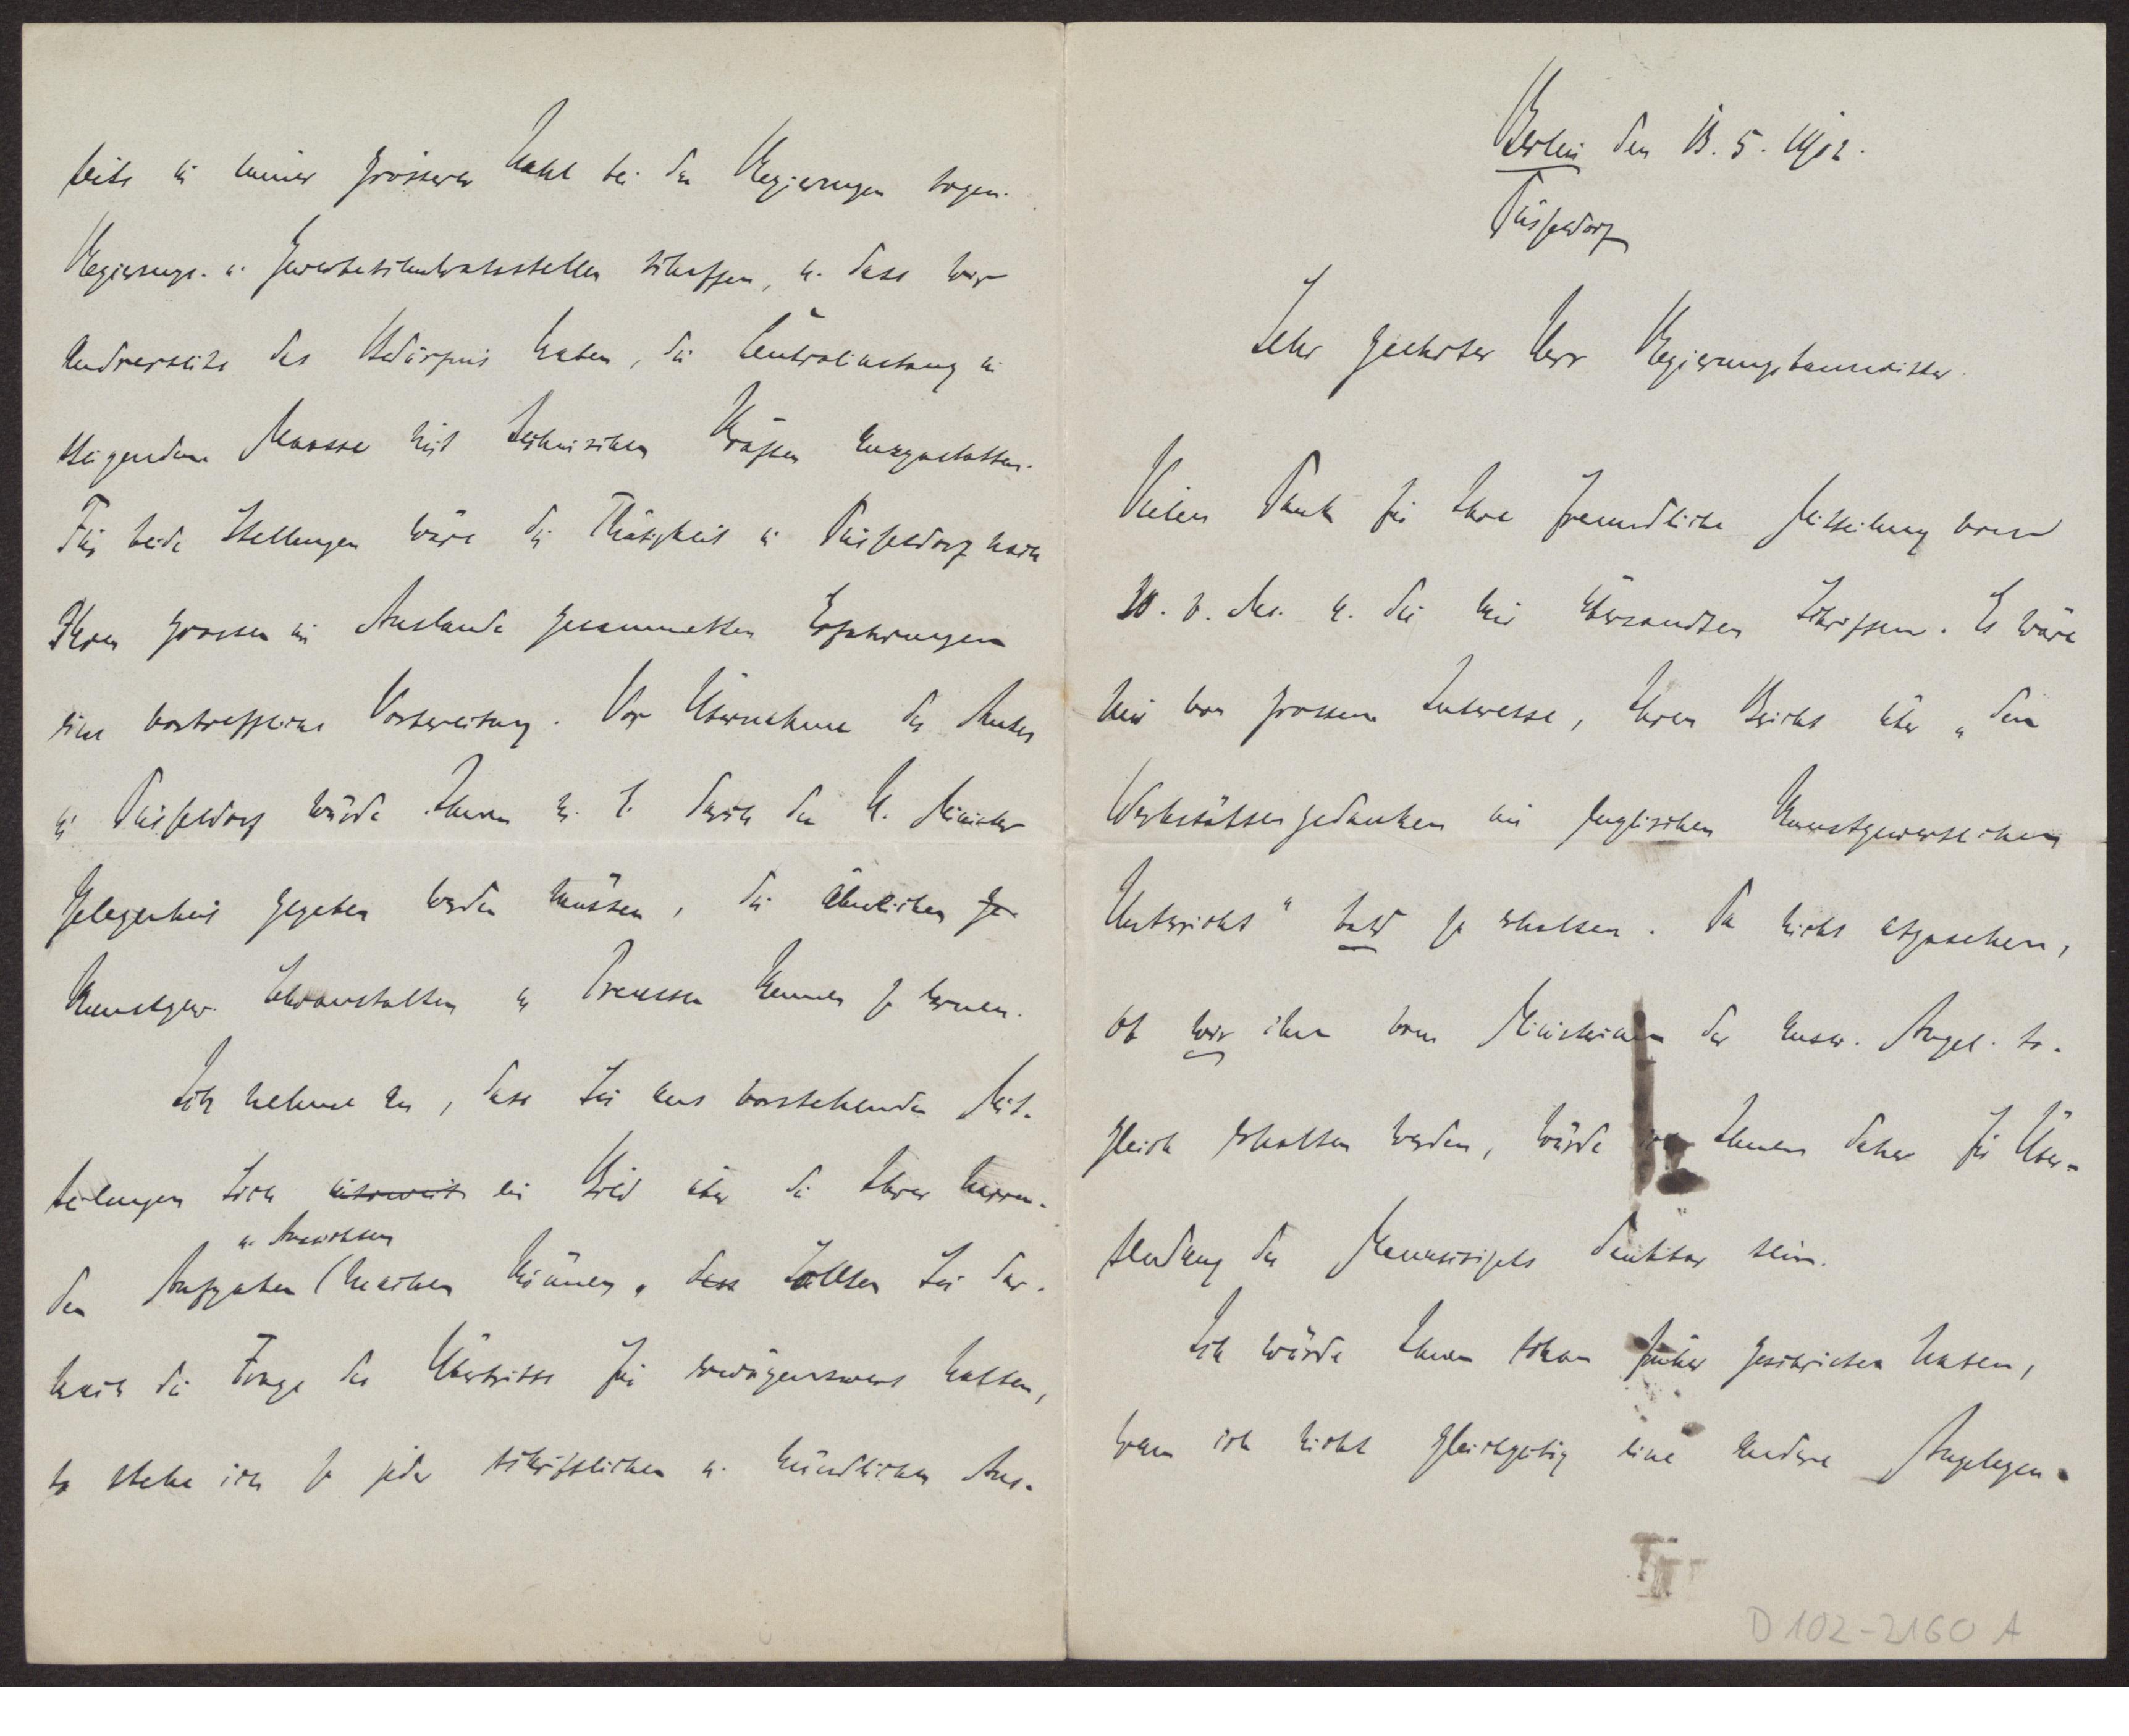 Berlin den 13. 5. 1902.
Düsseldorf
Sehr geehrter Herr Regierungsbaumeister.
Vielen Dank für Ihre freundliche Mitteilung vom
30. v. Ms. u. die mir übersandten Schriften. Es wäre
mir von grossem Interesse, Ihren Bericht über „den
Werkstättengedanken im englischen Kunstgewerblichen
Unterricht" bald zu erhalten. Da nicht abzusehen,
ob wir ihn vom Ministerium der ausw. Angel. so-
gleich erhalten werden, würde ich Ihnen daher für Über-
sendung des Manuscripts dankbar sein.
Ich würde Ihnen schon früher geschrieben haben,
wenn ich nicht gleichzeitig eine andere Angelegen-
D 102-2160 A
seits in immer grösserer Zahl bei den Regierungen sogen.
Regierungs- u. Gewerbeschulratsstellen schaffen, u. dass wir
andrerseits das Bedürfnis haben, die Centralinstanz in
steigendem Maasse mit technischen Kräften auszustatten.
Für beide Stellungen wäre die Thätigkeit in Düsseldorf nach
Ihren grossen im Auslande gesammelten Erfahrungen
eine vortreffliche Vorbereitung. Vor Übernahme des Amtes
in Düsseldorf würde Ihnen m. E. durch den H. Minister
Gelegenheit gegeben werden müssen, die ähnlichen Ge-
Kunstgew. Lehranstalten in Preussen kennen zu lernen.
Ich nehme an, dass Sie aus vorstehenden Mit-
teilungen sich ein Bild über die Ihrer harren-
u. Aussichten
den Aufgaben machen können, dass Sollten Sie dar-
nach die Frage des Übertritts für erwägenswert halten,
so stehe ich zu jeder schriftlichen u. mündlichen Aus-